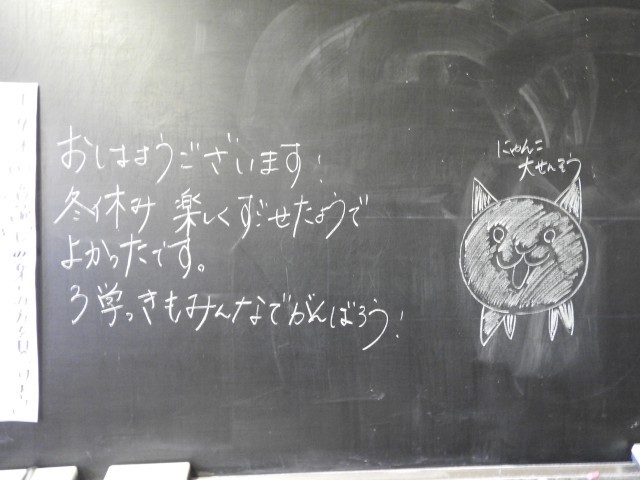 おはようございます!
冬休み 楽しくすごせたようで
よかったです。
3学っきもみんなでがんばろう!
にゃんこ
大せんそう